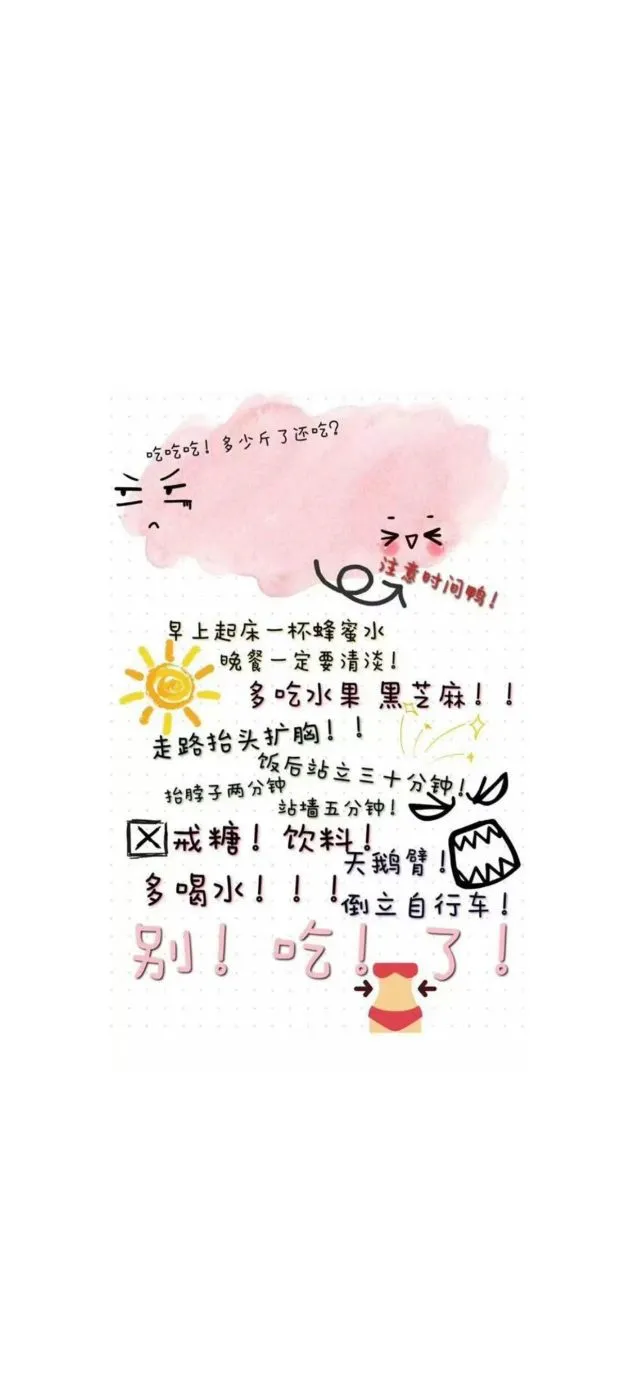 吃吃吃！多少斤了还吃？
注意时间鸭！
早上起床一杯蜂蜜水
晚餐一定要清淡！
多吃水果 黑芝麻！！
走路抬头扩胸！！
饭后站立三十分钟！
抬脖子两分钟
站墙五分钟！
戒糖！饮料！
天鹅臂！
多喝水！！！
倒立自行车！
别！吃！了！